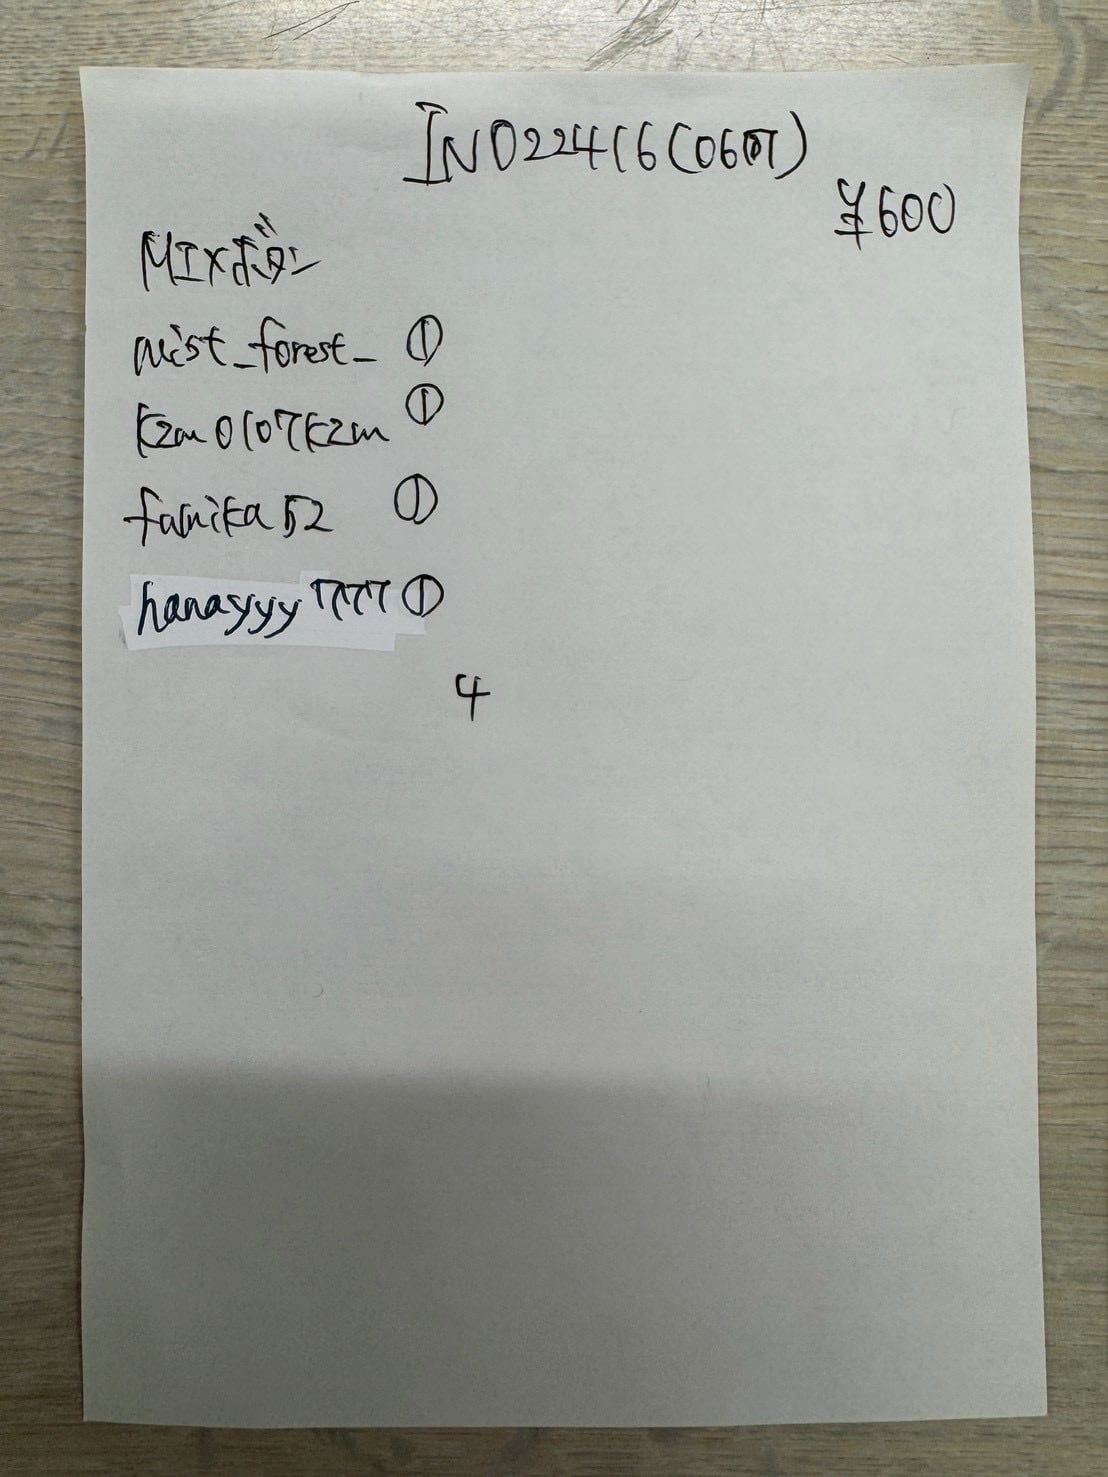 INO22416(0607)
¥600
MIXボタン
mist_forest_ ①
kzm0107kzm ①
famika52 ①
hanayyy7777 ①
4